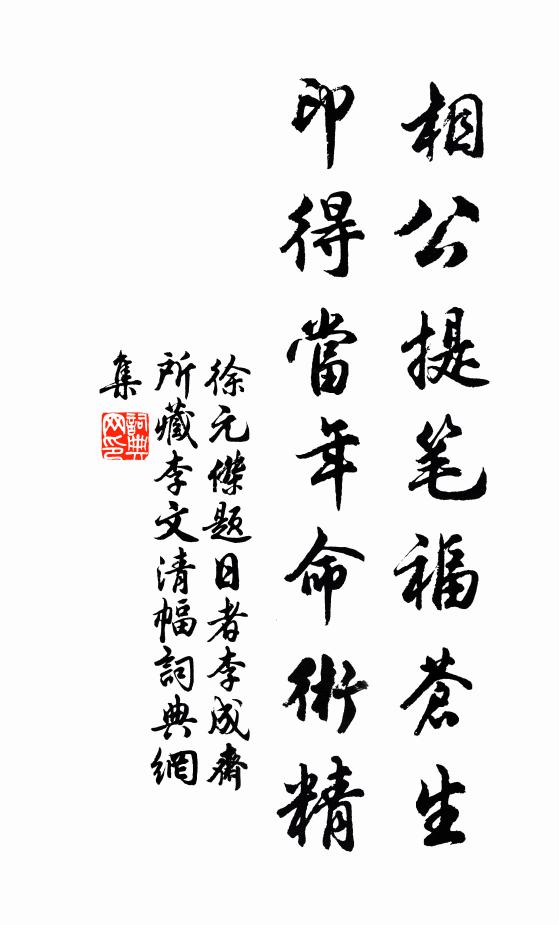 相公提笔福蒼生
印得當年命術精
徐元傑題日者李成齋
所藏李文清幅詞典網
集
詞典网印